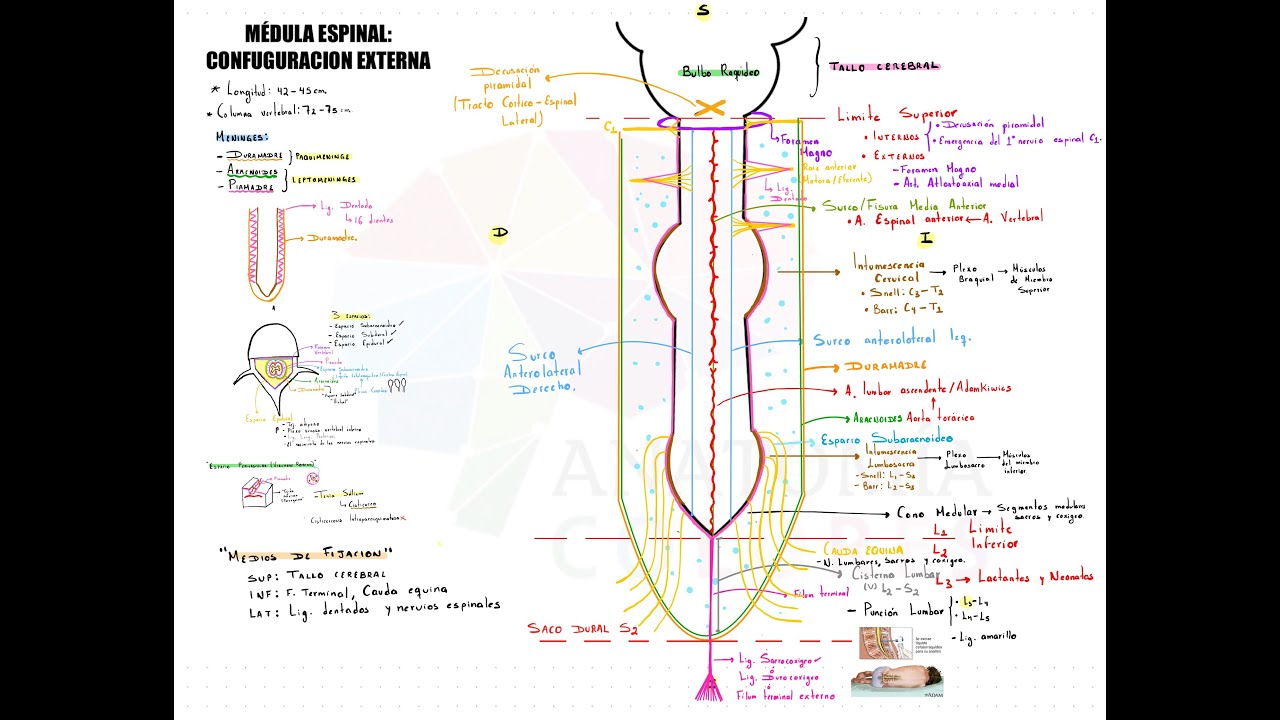 MÉDULA ESPINAL:
CONFUGURACION EXTERNA
* Longitud: 42-45cm.
* Columna vertebral: 72-75cm.
MENINGES:
- DURAMADRE
- ARACNOIDES
- PIAMADRE
PAQUIMENINGE
LEPTOMENINGES
Lig. Dentado
↳ 16 dientes
Duramadre.
A
3 ESPACIOS:
- Espacio Subaracnoideo ✓
- Espacio Subdural ✓
- Espacio Epidural ✓
Foramen
Vertebral
Piamadre
Espacio Subaracnoideo
Aracnoides
Duramadre
Espacio Epidural
P - Tej. adiposo
- Plexo venoso vertebral interno
- Lig. Long. Posterior
- El nacimiento de los nervios espinales
Piamadre
- Tenia Solium
↳ Cisticerco
Cisticercosis Intraparenquimatosa x
"MEDIOS DE FIJACION"
SUP: TALLO CEREBRAL
INF: F. Terminal, Cauda equina
LAT: Lig. dentados y nervios espinales
S
Bulbo Raquídeo
TALLO CEREBRAL
Decusación
piramidal
(Tracto Cortico-Espinal
Lateral)
C1
Foramen
Magno
Raiz anterior
(Motora/Eferente)
↳ Lig.
Dentado
D
I
Limite Superior
• INTERNOS
• Decusación piramidal
• Emergencia del 1° nervio espinal C1.
• EXTERNOS
- Foramen Magno
- Art. Atloatoaxial medial
Surco/Fisura Media Anterior
• A. Espinal anterior ← A. Vertebral
Intumescencia
Cervical
• Snell: C3-T2
• Barr: C4-T1
Plexo
Braquial
Músculos
de Miembro
Superior
Surco anterolateral Izq.
Surco
Anterolateral
Derecho.
DURAMADRE
A. lumbar ascendente/Adamkiwics
ARACNOIDES
Aorta torácica
Espacio Subaracnoideo
Intumescencia
Lumbosacra
- Snell: L1-S2
- Barr: L2-S3
Plexo
Lumbosacro
Músculos
del miembro
inferior.
Cono Medular → Segmentos medulares
sacros y coxígeo.
L1 Limite
L2 Inferior
L3 → Lactantes y Neonatos
CAUDA EQUINA
- N. Lumbares, Sacros y coxígeo.
Cisterna Lumbar
(V) L2-S2
Filum terminal
- Punción Lumbar
• L3-L4
• L4-L5
- Lig. amarillo
SACO DURAL S2
Lig. Sacrocoxígeo ✓
ó
Lig. Durocoxígeo
ó
Filum terminal externo
Se extrae
líquido
cefalorraquídeo
para su análisis
©ADAM
ANATOMÍA